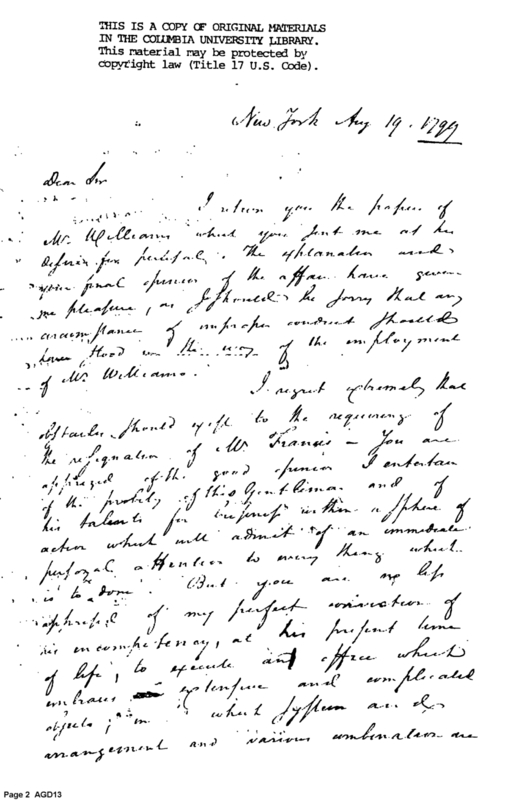 THIS IS A COPY OF ORIGINAL MATERIALS
IN THE COLUMBIA UNIVERSITY LIBRARY.
This material may be protected by
copyright law (Title 17 U.S. Code).
New York Aug 19. 1799
Dear Sir
I return you the papers of
Mr. Williams which you sent me at his
desire for perusal. The explanation and
your final opinion of the affair have given
me pleasure, as I should be sorry that any
circumstance of improper conduct should
have stood in the way of the employment
of Mr. Williams.
I regret extremely that
obstacles should exist to the requiring of
the resignation of Mr. Francis – You are
apprized of the good opinion I entertain
of the probity of this Gentleman and of
his talents for business within a sphere of
action which will admit of an immediate
personal attention to every thing which
is to be done. But you are no less
apprised of my perfect conviction of
his incompetency, at his present time
of life, to execute an office which
embraces extensive and complicated
objects; in which system and
arrangement and various combination are
Page 2 AGD13